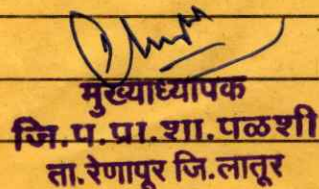 मुख्याध्यापक
जि.प.प्रा.शा.पळशी
ता.रेणापूर जि.लातूर